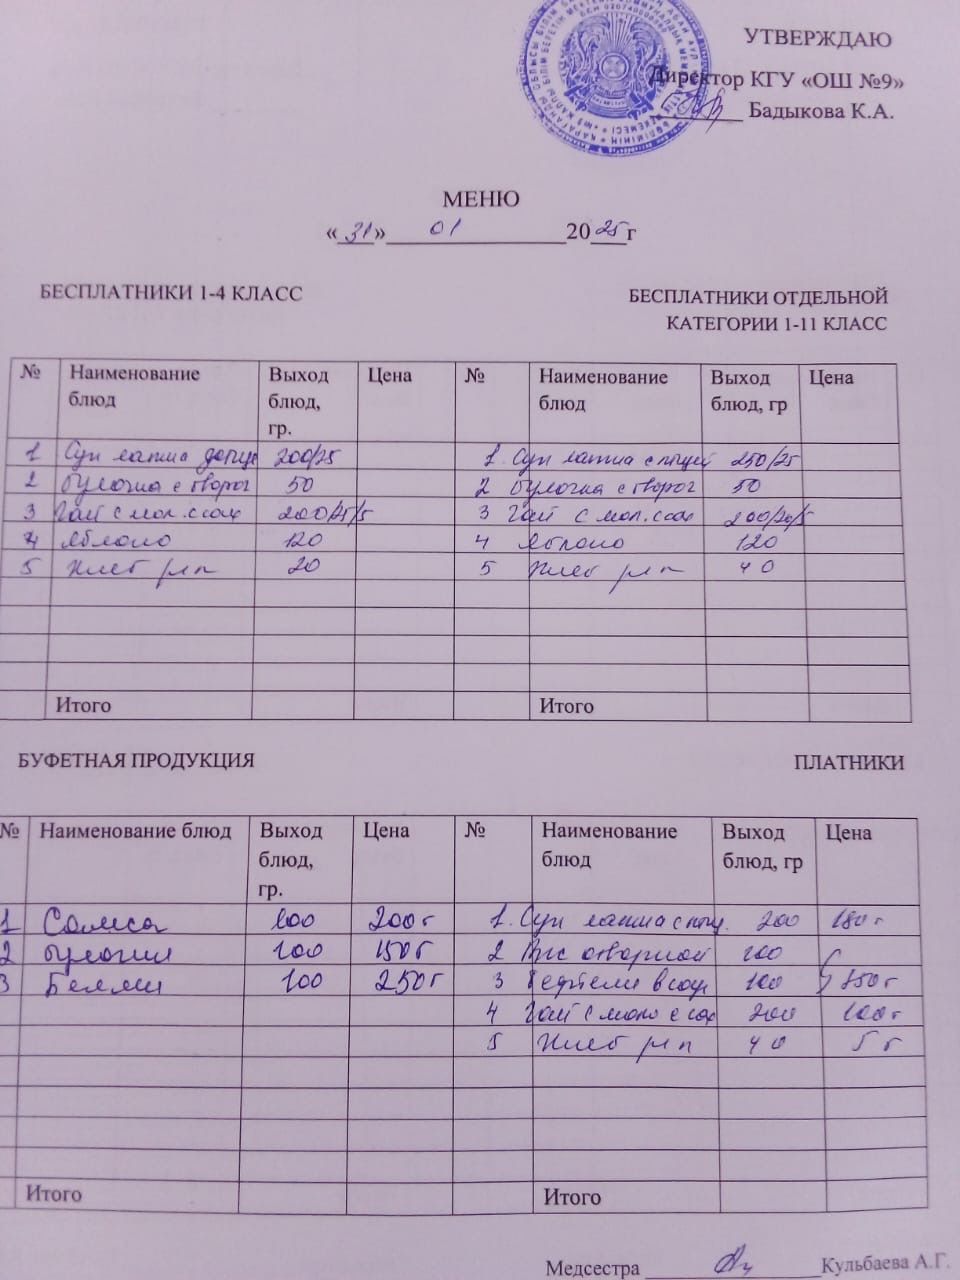 УТВЕРЖДАЮ
Директор КГУ «ОШ №9»
Бадыкова К.А.
МЕНЮ
«31» 01 2025г
БЕСПЛАТНИКИ 1-4 КЛАСС
БЕСПЛАТНИКИ ОТДЕЛЬНОЙ
КАТЕГОРИИ 1-11 КЛАСС
№ Наименование блюд Выход блюд, гр. Цена № Наименование блюд Выход блюд, гр Цена
1 Суп лапша 200/25 1. Суп лапша с птицей 250/25
2 Булочка с творог 50 2 Булочка с творог 50
3 Чай с мол. с сах 3 Чай с мол. с сах 200/20/5
4 Яблоко 120 4 Яблоко 120
5 Хлеб рж п 20 5 Хлеб рж п 40
Итого Итого
БУФЕТНАЯ ПРОДУКЦИЯ ПЛАТНИКИ
№ Наименование блюд Выход блюд, гр. Цена № Наименование блюд Выход блюд, гр Цена
1 Самса 100 200г 1. Суп лапша с птиц. 200 180г
2 Булочки 100 150г 2 Рис отварной 100
3 Беляши 100 250г 3 Тефтели в соус 100 350г
4 Чай с моло с сах 200 100г
5 Хлеб рж п 40 5г
Итого Итого
Медсестра Кульбаева А.Г.